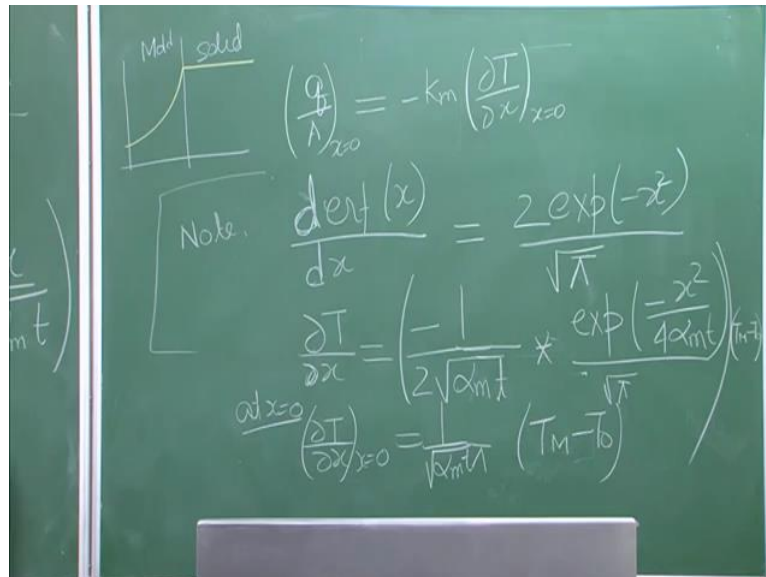 Mold solid
(q/A)x=0 = -Km (∂T/∂x)x=0
Note.
d erf(x)/dx = 2 exp(-x²)/√π
∂T/∂x = (-1/(2√αmt) * exp(-x²/4αmt)/√π)
at x=0 (∂T/∂x)x=0 = (TM-T0)
mt